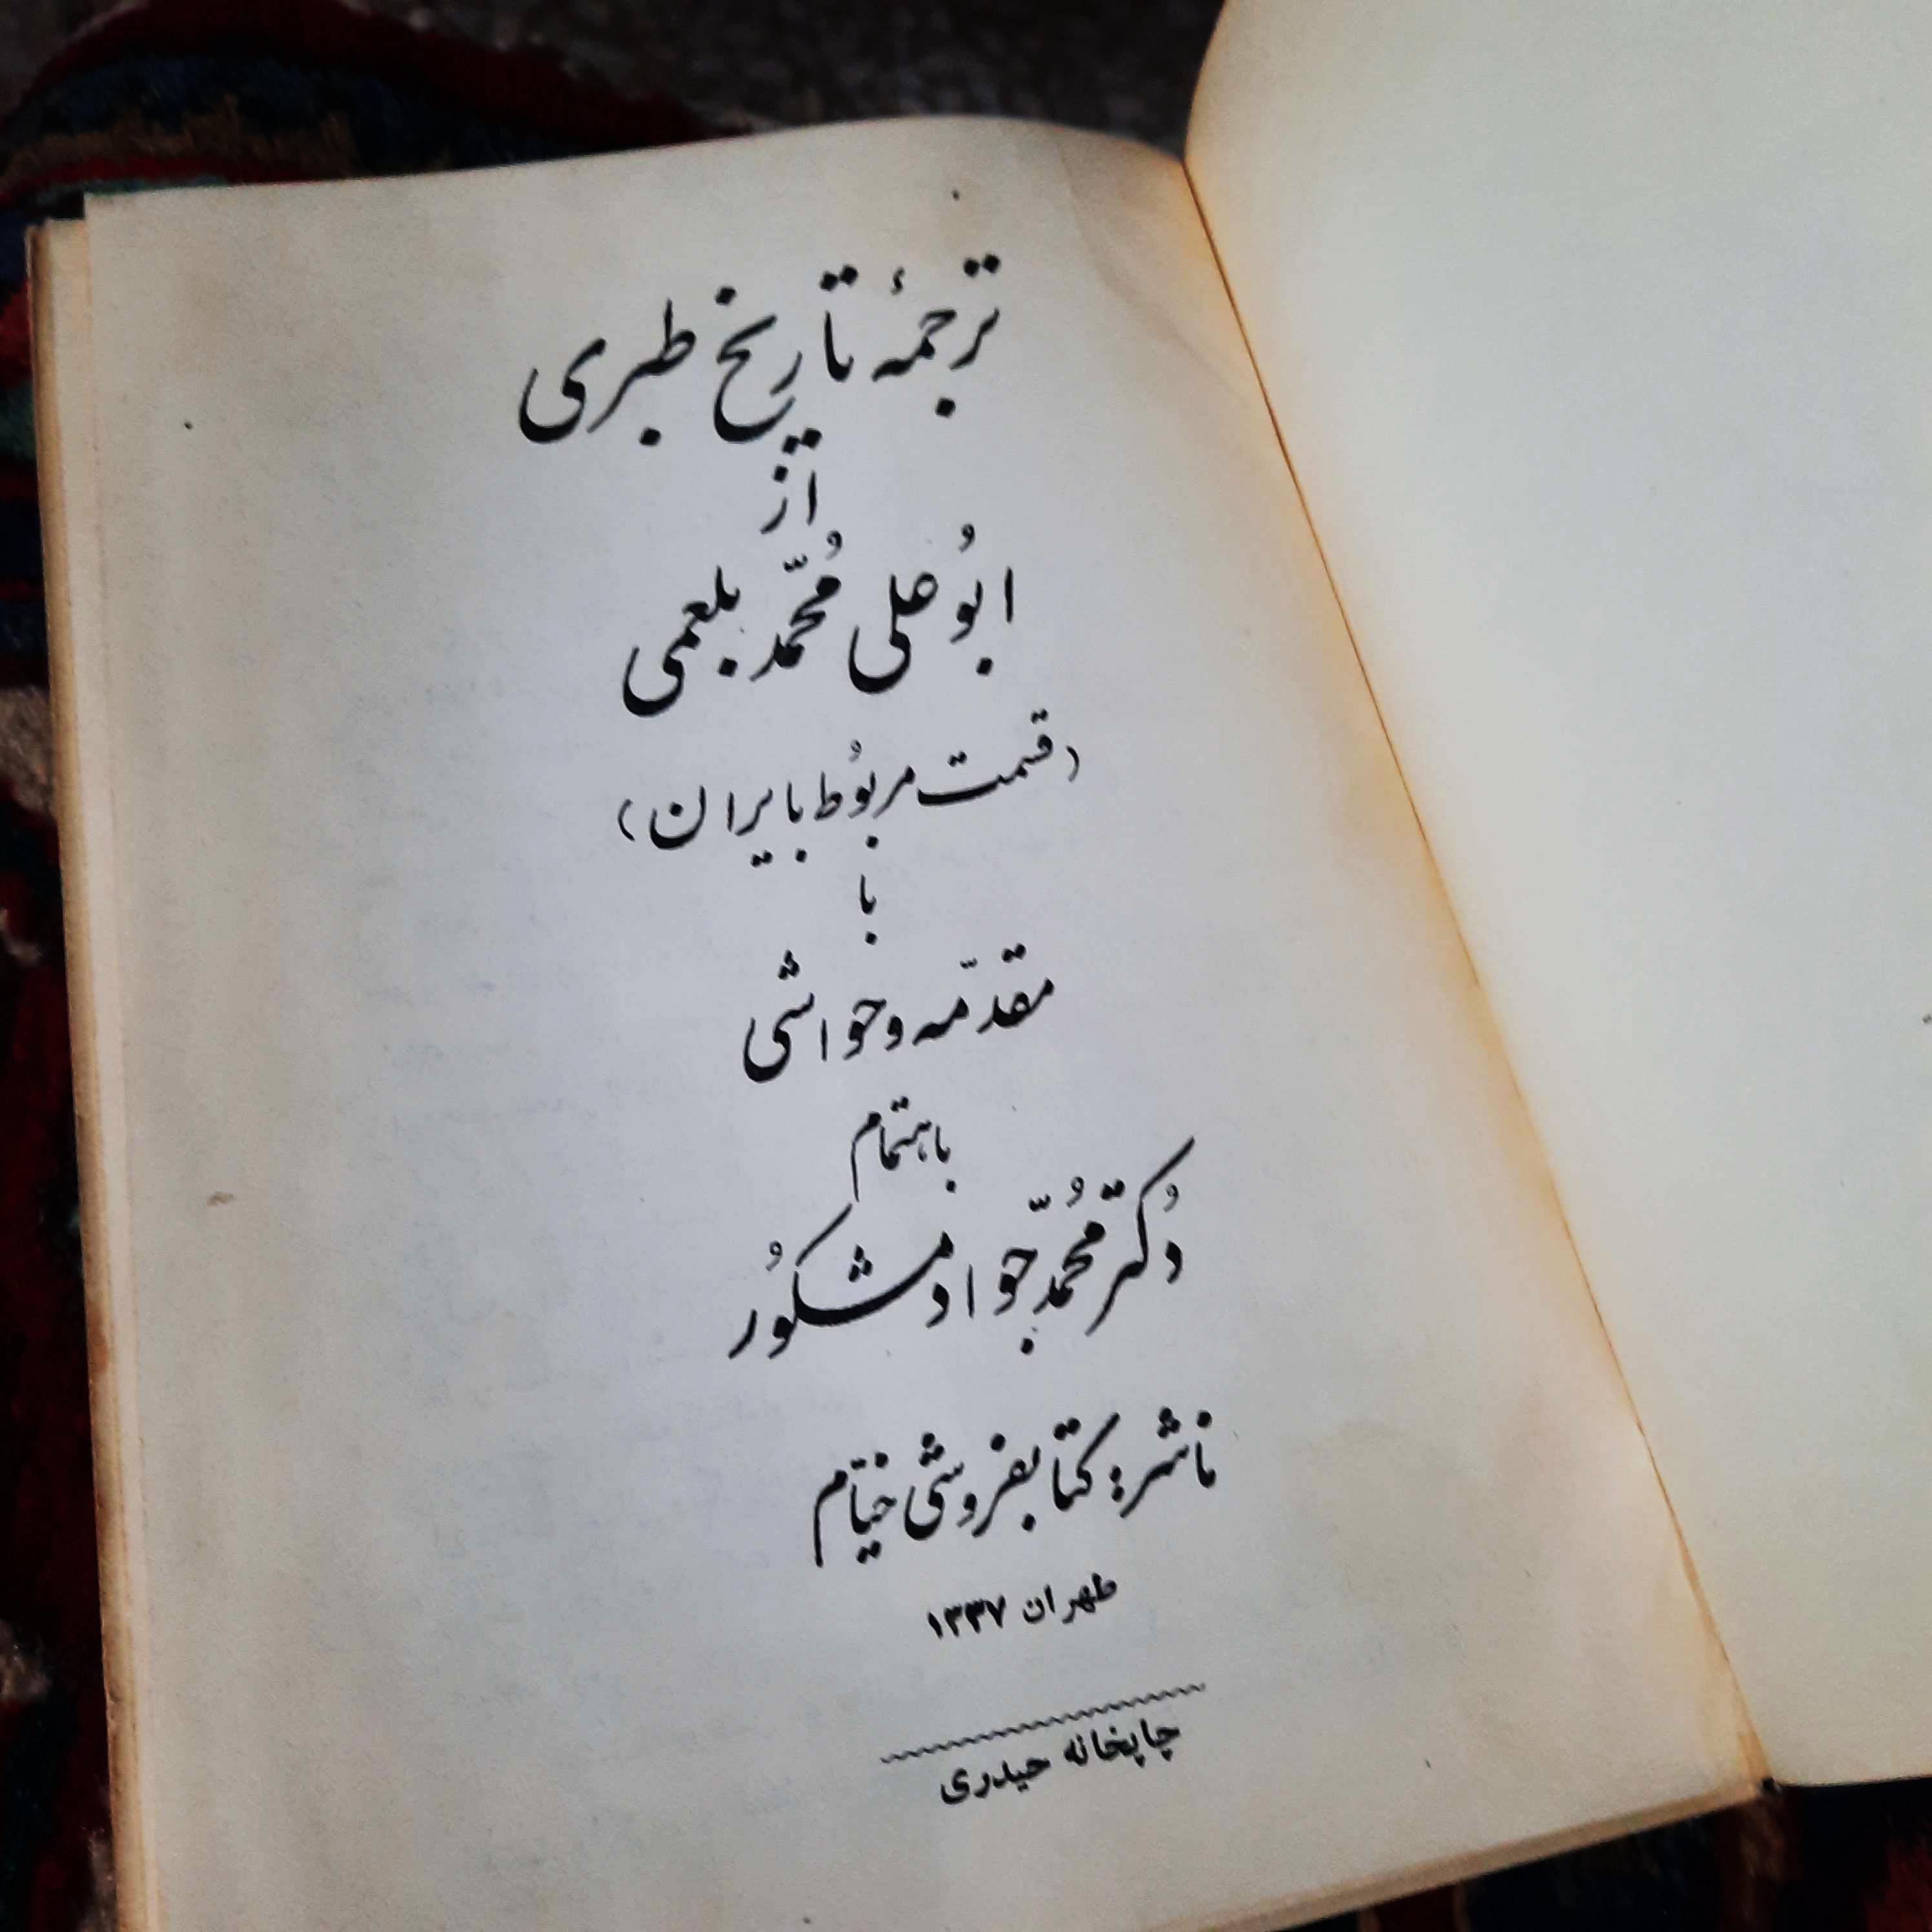 ترجمهٔ تاریخ طبری
از
ابُوعلی مُحمّد بلعمی
(قسمت مربُوط بایران)
با
مقدّمه وحواشی
باهتمام
دُکتر مُحمّد جواد مشکُور
ناشر: کتابفروشی خیّام
طهران ۱۳۳۷
چاپخانه حیدری